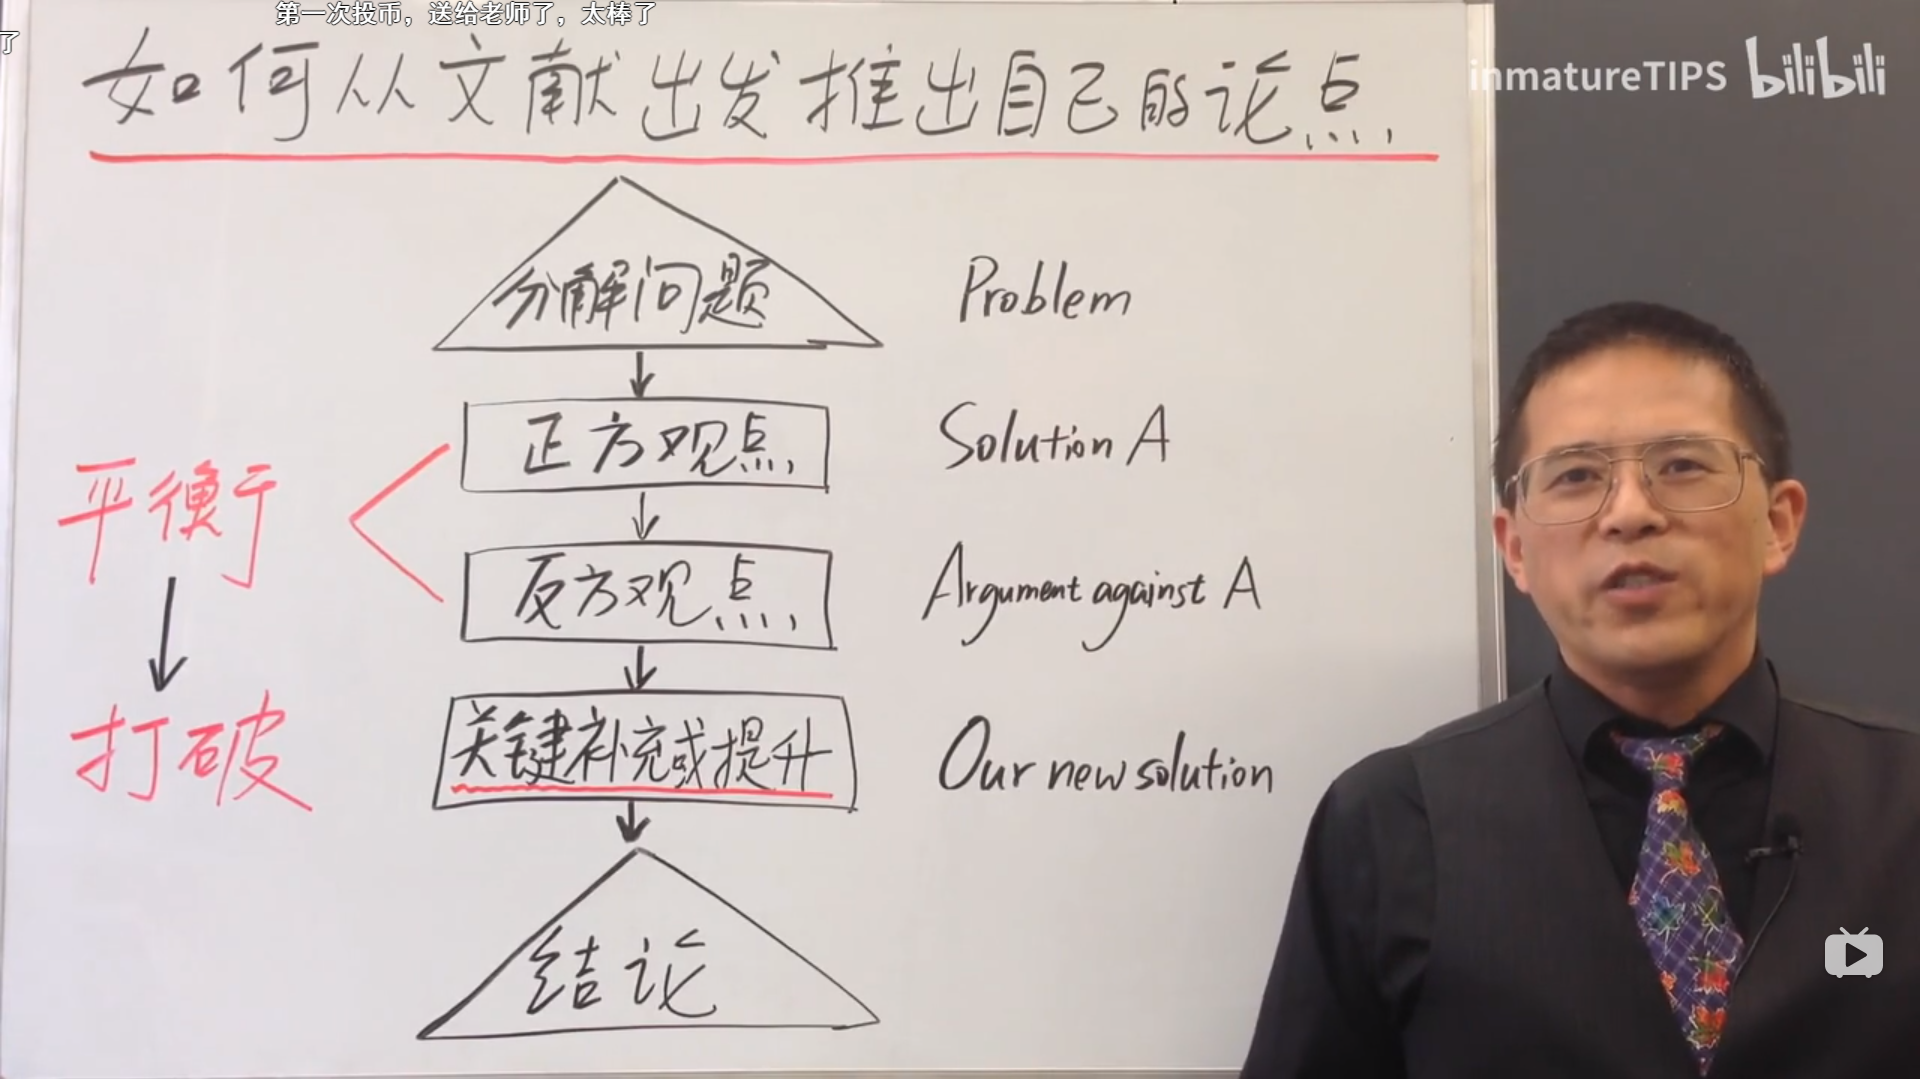 第一次投币，送给老师了，太棒了
了
inmatureTIPS bilibili
如何从文献出发推出自己的论点
分解问题 Problem
正方观点 Solution A
平衡于
反方观点 Argument against A
打破
关键补充或提升 Our new solution
结论